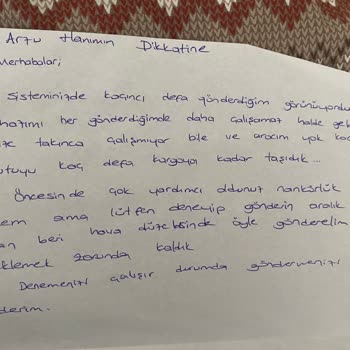 Arzu Hanımın Dikkatine
Merhabalar;
Sisteminizde kaçıncı defa gönderdiğim görünüyordur
her gönderdiğimde daha çalışamaz halde
takınca çalışmıyor bile ve aracım yok
kaç defa kargoya kadar taşıdık...
Öncesinde çok yardımcı oldunuz nankörlük
ama lütfen deneyip gönderin aralık
beri hava düzelsinde öyle gönderelim
zorunda kaldık
Denemenizi çalışır durumda göndermenizi